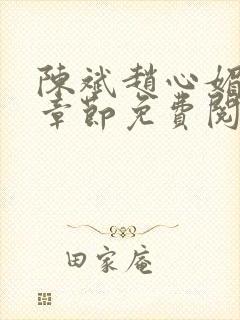 陳斌趙心媚
章節免費閱
田家庵